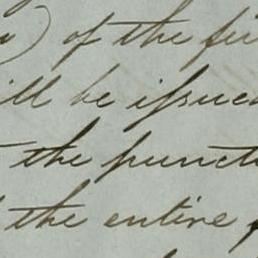 ) of the fi
ill be issue
the punctu
the entire